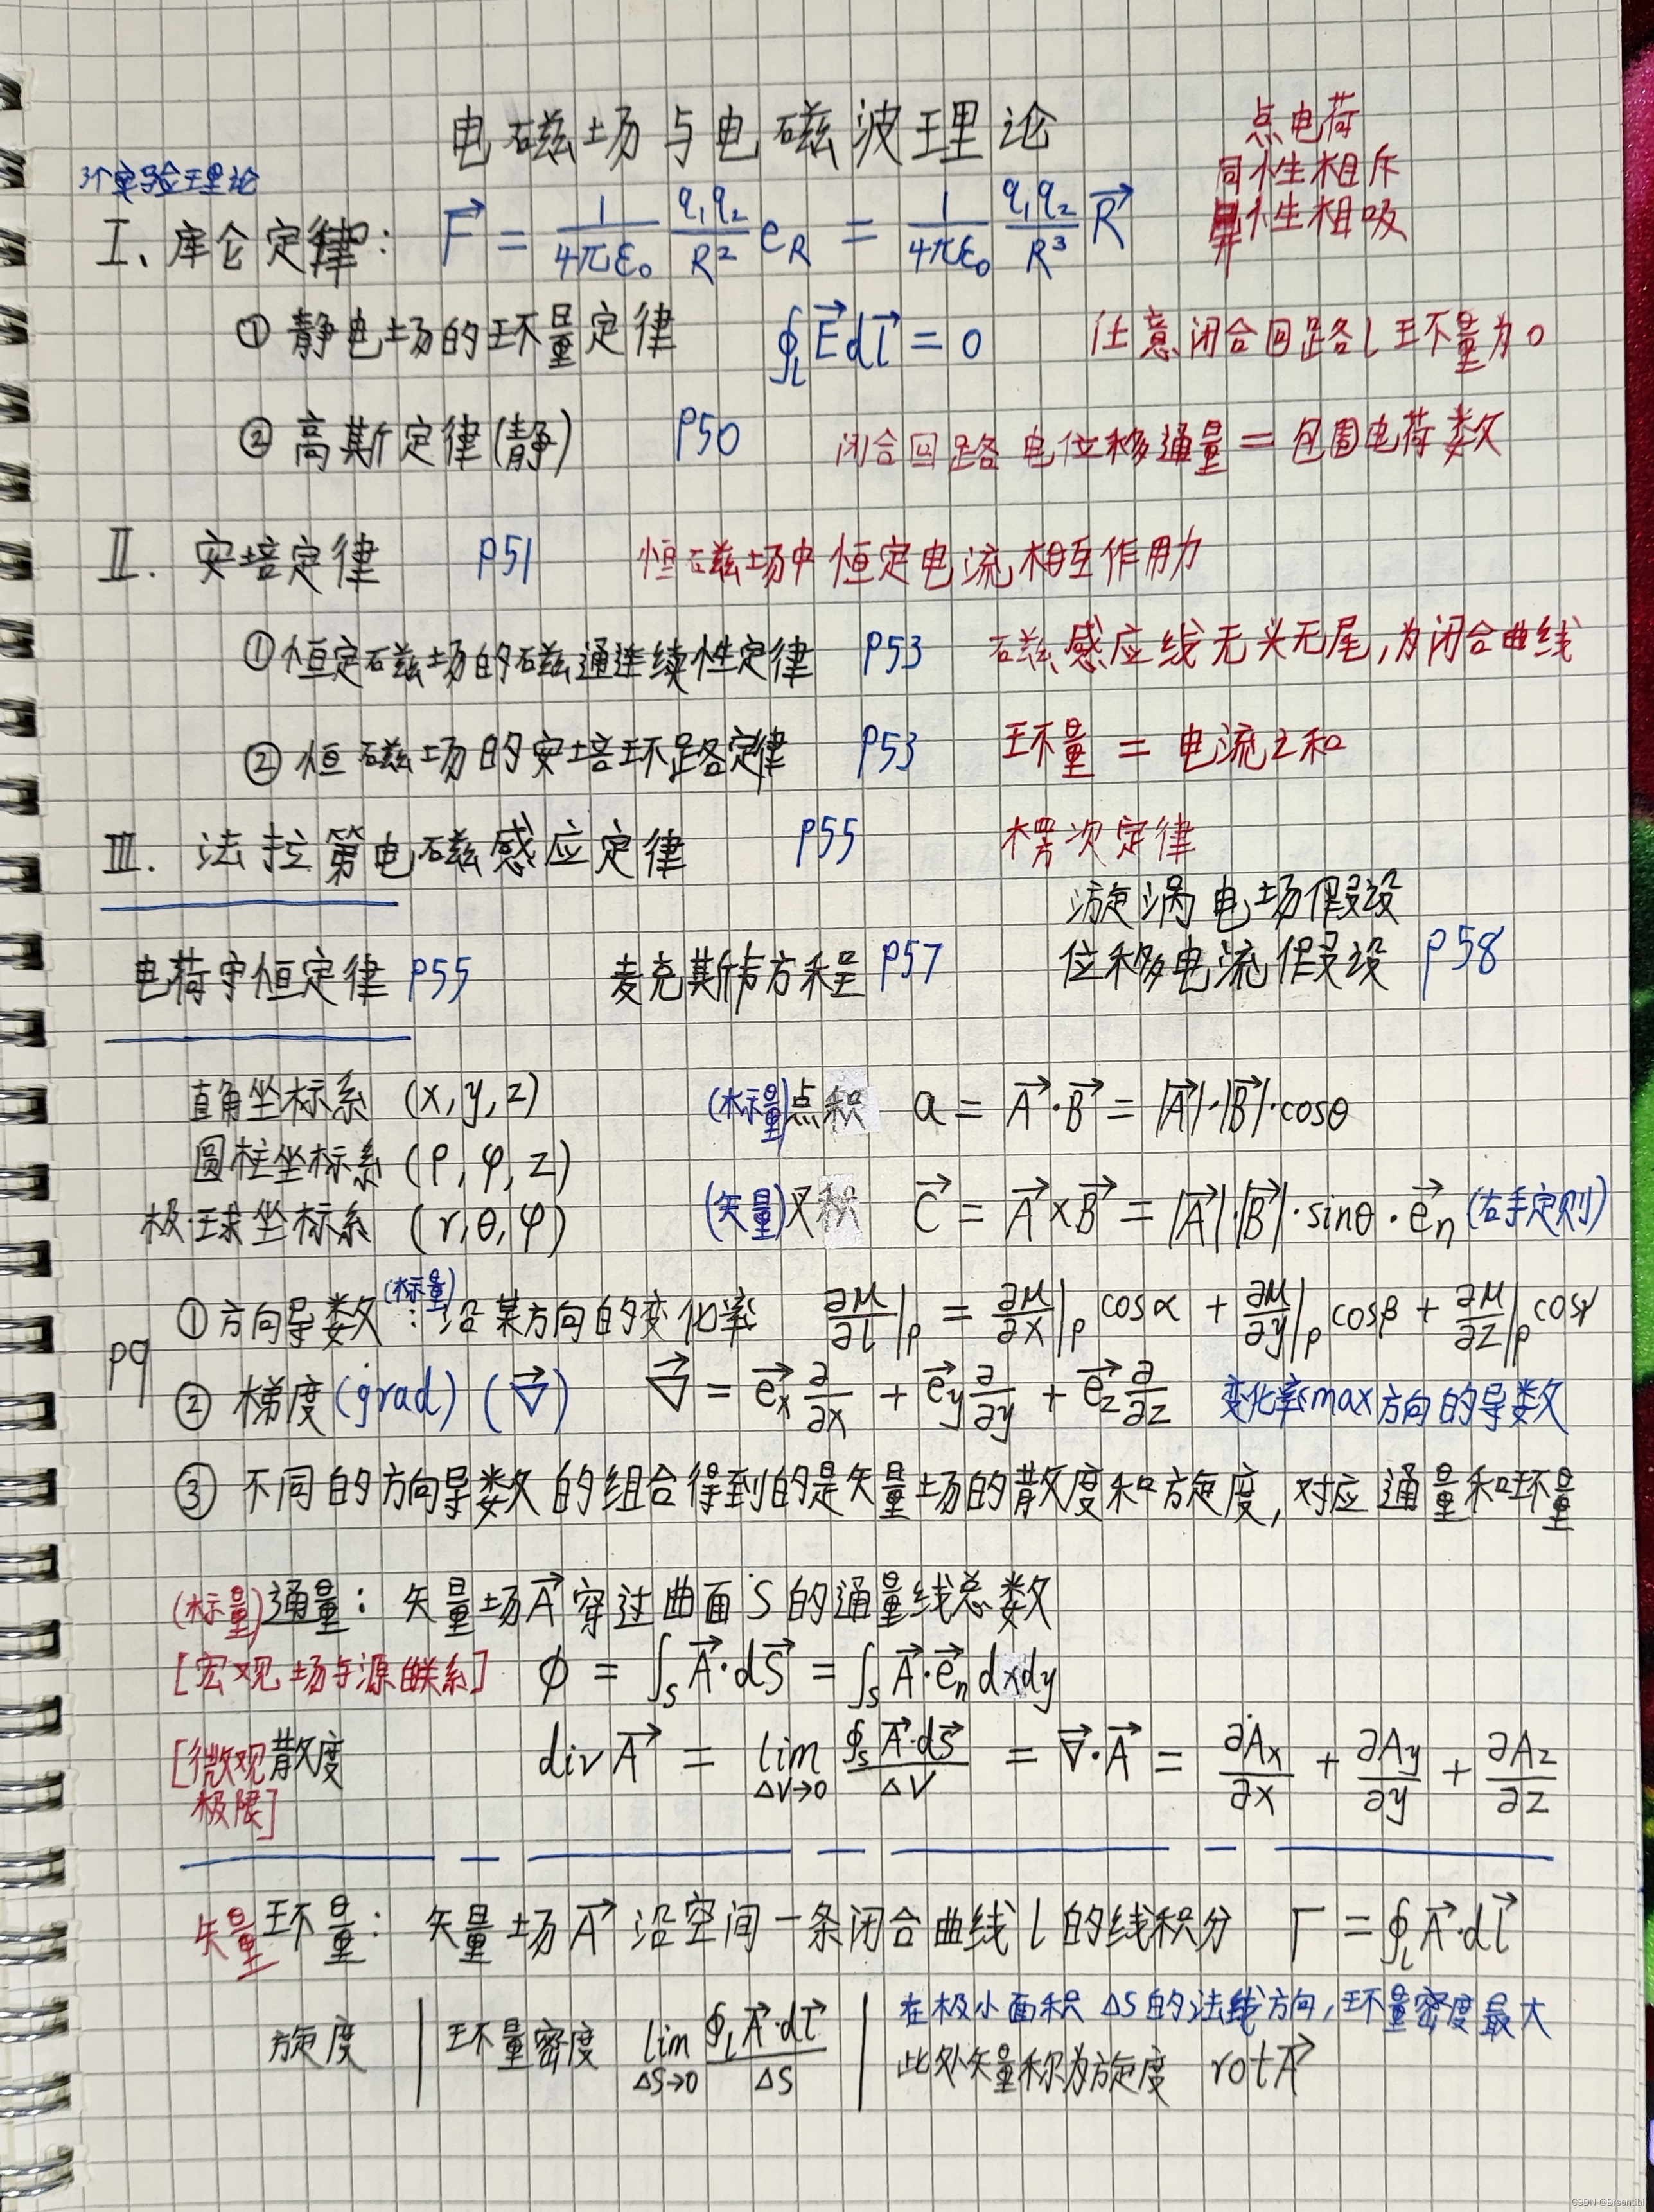 电磁场与电磁波理论
点电荷
同性相斥
异性相吸
3个实验理论
I、库仑定律： F⃗ = 1/(4πε₀) q₁q₂/R² e_R = 1/(4πε₀) q₁q₂/R³ R⃗
① 静电场的环量定律 ∮_l E⃗ dl⃗ = 0 任意闭合回路l环量为0
② 高斯定律(静) P50 闭合回路电位移通量=包围电荷数
II. 安培定律 P51 恒磁场中恒定电流相互作用力
①恒定磁场的磁通连续性定律 P53 磁感应线无头无尾,为闭合曲线
②恒磁场的安培环路定律 P53 环量 = 电流之和
III. 法拉第电磁感应定律 P55 楞次定律
漩涡电场假设
电荷守恒定律 P55 麦克斯韦方程 P57 位移电流假设 P58
直角坐标系 (x,y,z) (标量)点积 a = A⃗·B⃗ = |A⃗|·|B⃗|·cosθ
圆柱坐标系 (ρ,φ,z)
极·球坐标系 (r,θ,φ) (矢量)叉积 C⃗ = A⃗×B⃗ = |A⃗|·|B⃗|·sinθ·e⃗n (右手定则)
①方向导数(标量)：沿某方向的变化率 ∂μ/∂l|p = ∂μ/∂x|p cosα + ∂μ/∂y|p cosβ + ∂μ/∂z|p cosγ
P9
② 梯度(grad) (∇⃗) ∇⃗ = e⃗x ∂/∂x + e⃗y ∂/∂y + e⃗z ∂/∂z 变化率max方向的导数
③ 不同的方向导数的组合得到的是矢量场的散度和旋度,对应通量和环量
(标量)通量：矢量场A⃗穿过曲面S的通量线总数
[宏观场与源的联系] ϕ = ∫_S A⃗·dS⃗ = ∫_S A⃗·e⃗n dxdy
[微观散度 divA⃗ = lim ΔV→0 ∮_S A⃗·dS⃗/ΔV = ∇⃗·A⃗ = ∂Ax/∂x + ∂Ay/∂y + ∂Az/∂z
极限]
矢量环量：矢量场A⃗沿空间一条闭合曲线l的线积分 Γ = ∮_l A⃗·dl⃗
旋度 | 环量密度 lim ΔS→0 ∮_l A⃗·dl⃗/ΔS | 在极小面积ΔS的法线方向,环量密度最大
此处矢量称为旋度 rotA⃗
CSDN @Bisentibi